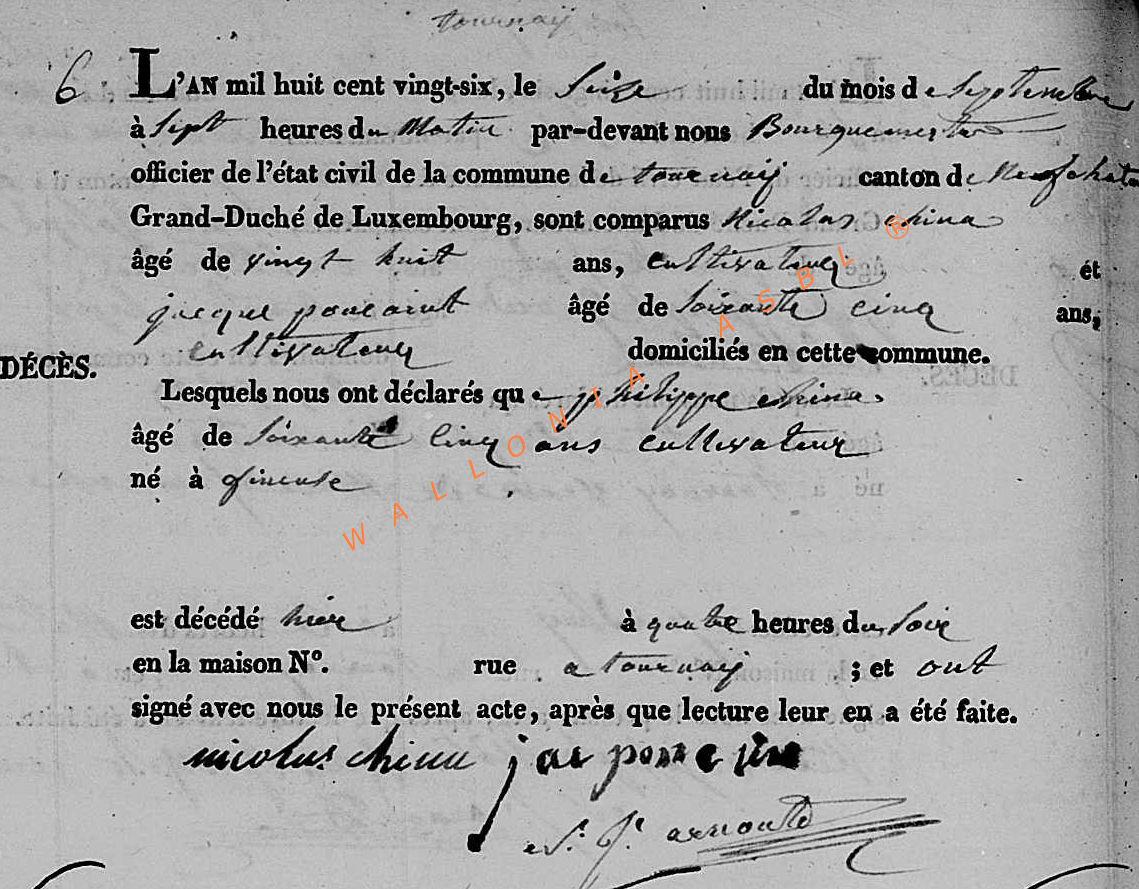 tournaÿ
6 L'AN mil huit cent vingt-six, le Seize du mois de Septembre
à Sept heures du Matin par-devant nous Bourguemestre
officier de l'état civil de la commune de tournaÿ canton de Neufchat
Grand-Duché de Luxembourg, sont comparus Nicolas china
âgé de vingt huit ans, cultivateur ét
jacque ponciut âgé de soixante cinq ans,
cultivateur domiciliés en cette commune.
DÉCÈS.
Lesquels nous ont déclarés que philippe china
âgé de soixante cinq ans cultivateur
né à
est décédé hier à quatre heures du soir
en la maison N°. rue a tournaÿ ; et ont
signé avec nous le présent acte, après que lecture leur en a été faite.
nicolas china
arnould
WALLONIA ASBL ®